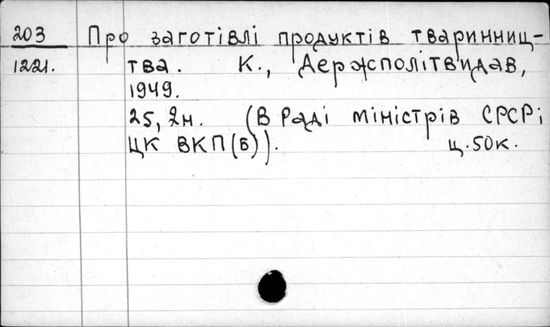 203 Про заготівлі продуктів тваринниц-
1221. тва. К., Держполітвидав,
1949.
25, 2н. (В Раді міністрів СРСР і
ЦК ВКП(б)). ц. 50к.